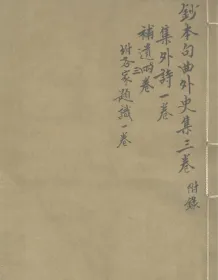 鈔本句曲外史集三卷 附錄
集外詩一卷
補遺三卷
坿各家題識一卷